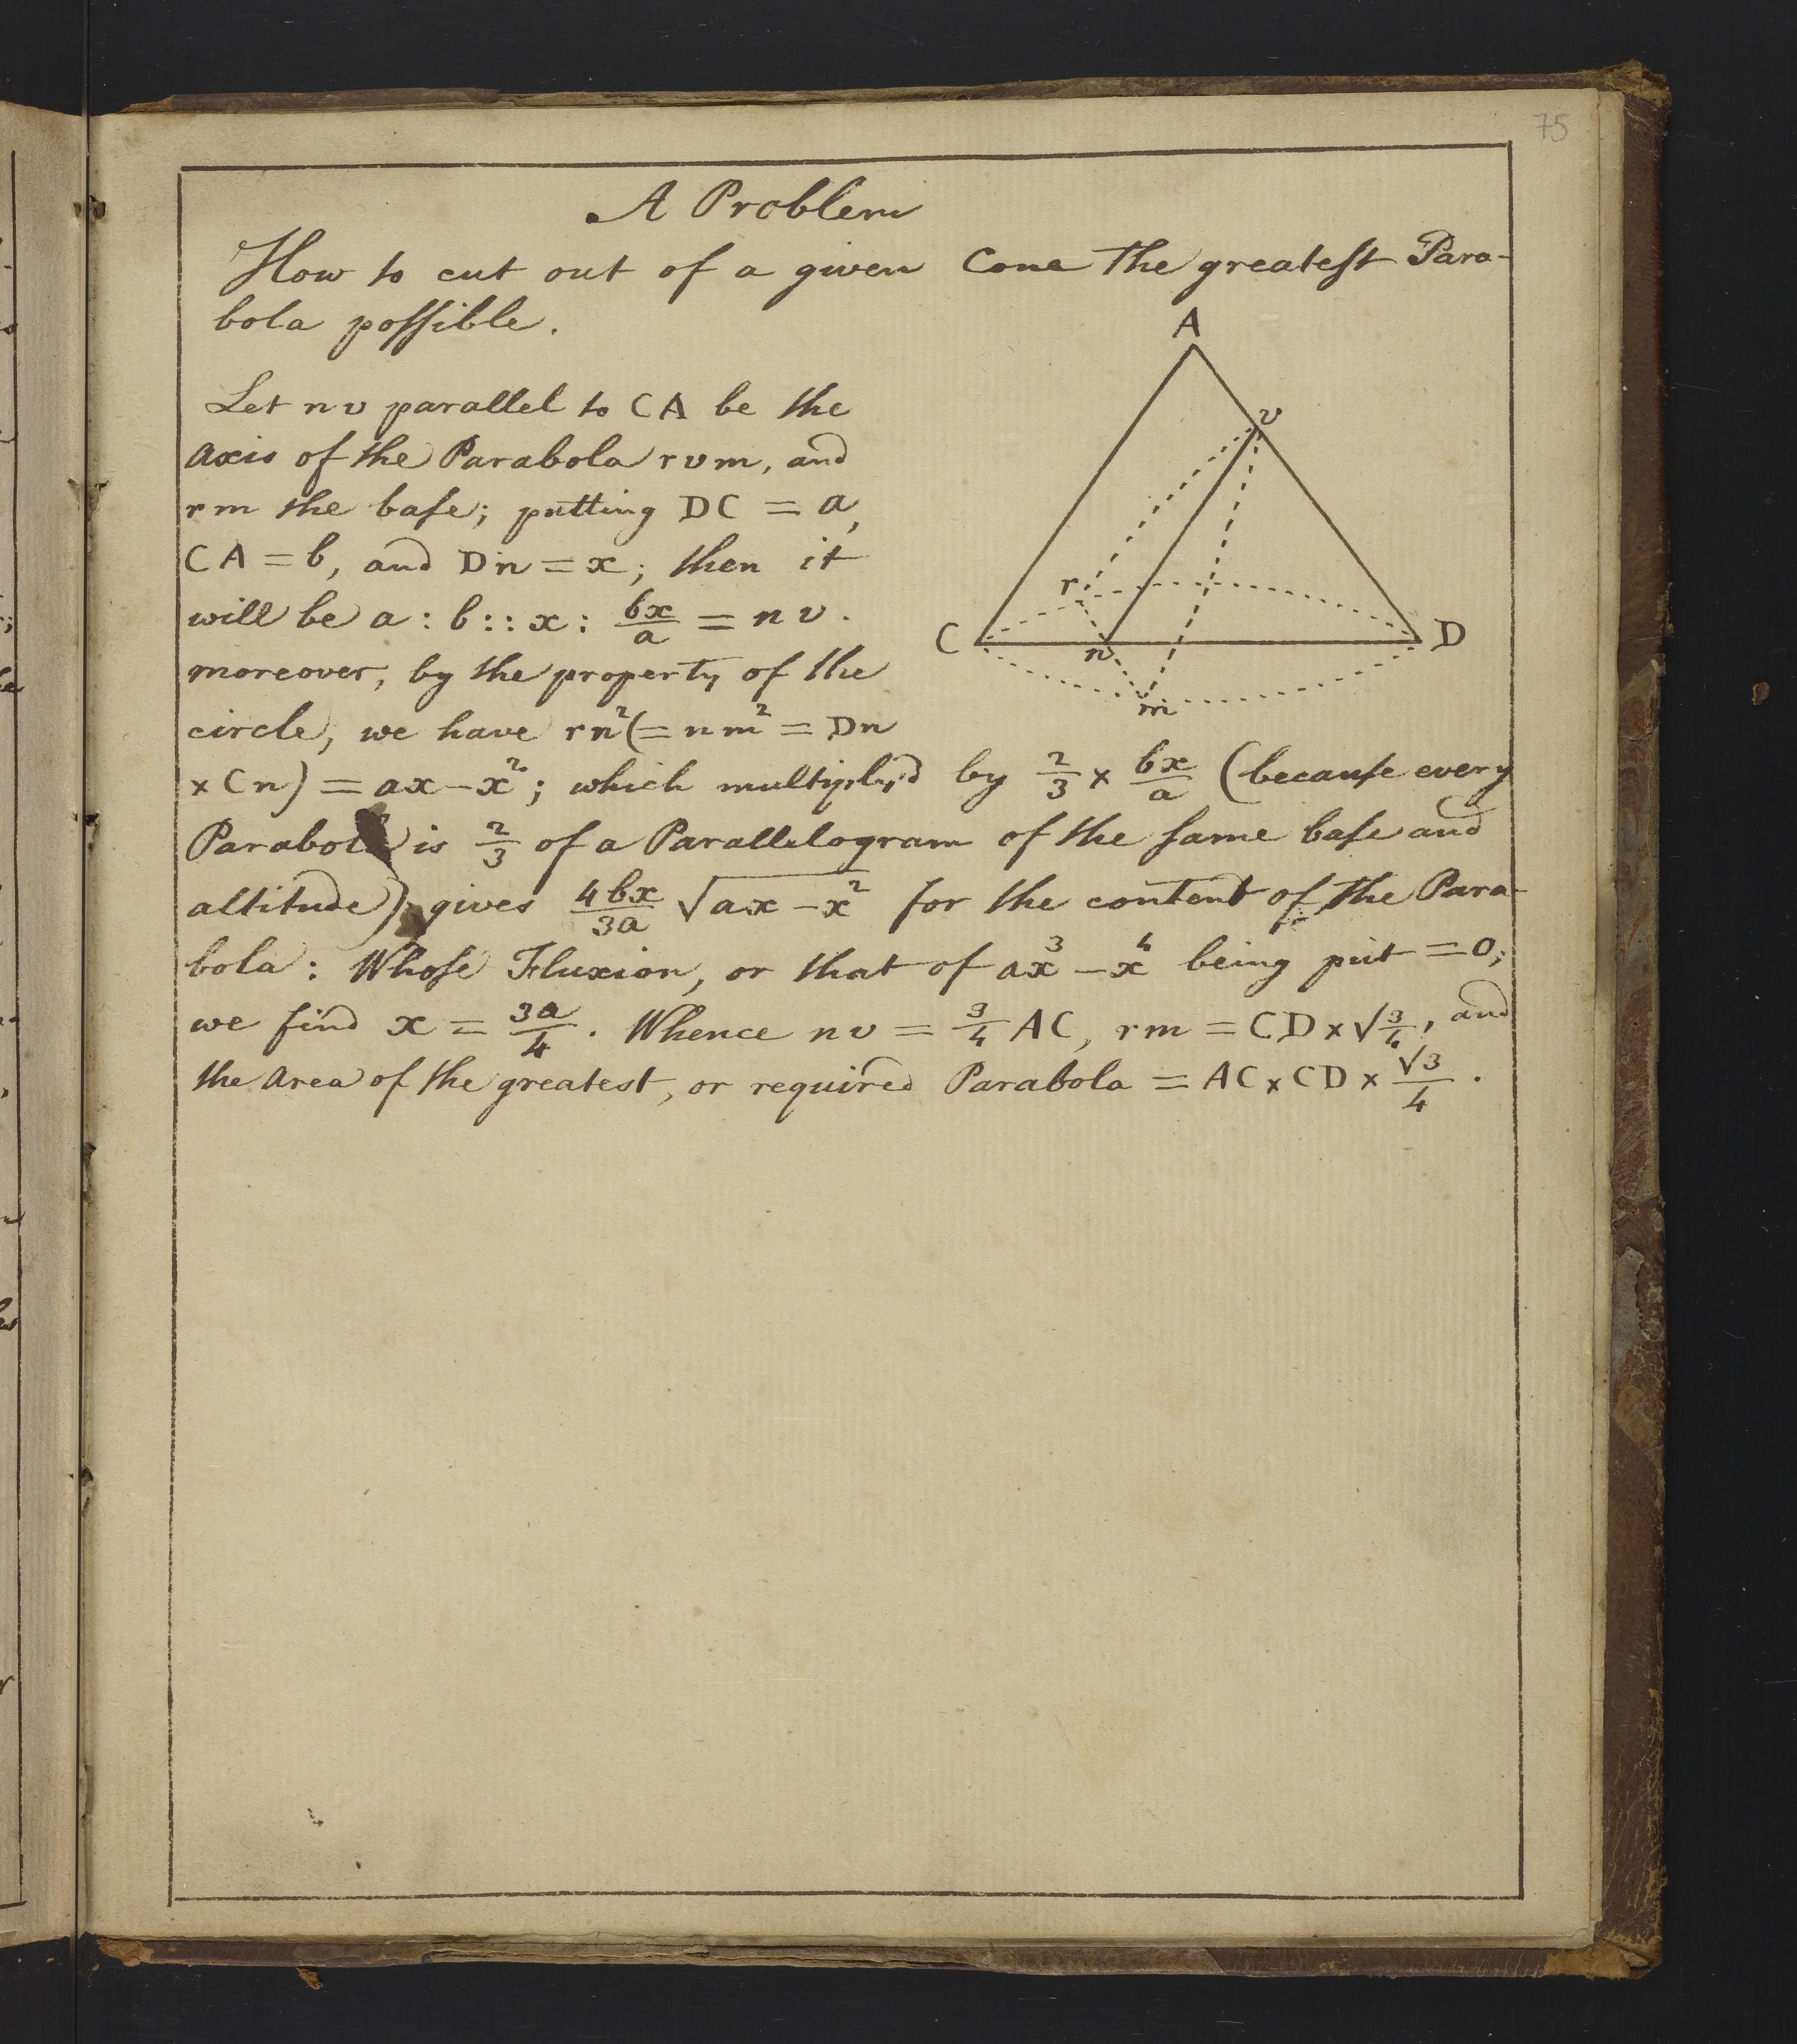 75
A Problem
How to cut out of a given Cone The greateſt Para-
bola poſſible.
A
v
r
C
n
D
m
Let n v parallel to CA be the
axis of the Parabola r v m, and
r m the baſe; putting DC = a,
CA = b, and Dn = x; then it
will be a : b :: x : bx/a = n v.
moreover, by the property of the
circle, we have rn² (= nm² = Dn
× Cn) = ax – x²; which multiply'd by 2/3 × bx/a (becauſe every
Parabola is 2/3 of a Parallelogram of the ſame baſe and
altitude) gives 4bx/3a √ax – x² for the content of the Para-
bola: Whoſe Fluxion, or that of ax³ – x⁴ being put = 0;
we find x = 3a/4. Whence n v = 3/4 AC, r m = CD × √3/4, and
the Area of the greatest, or required Parabola = AC × CD × √3/4.